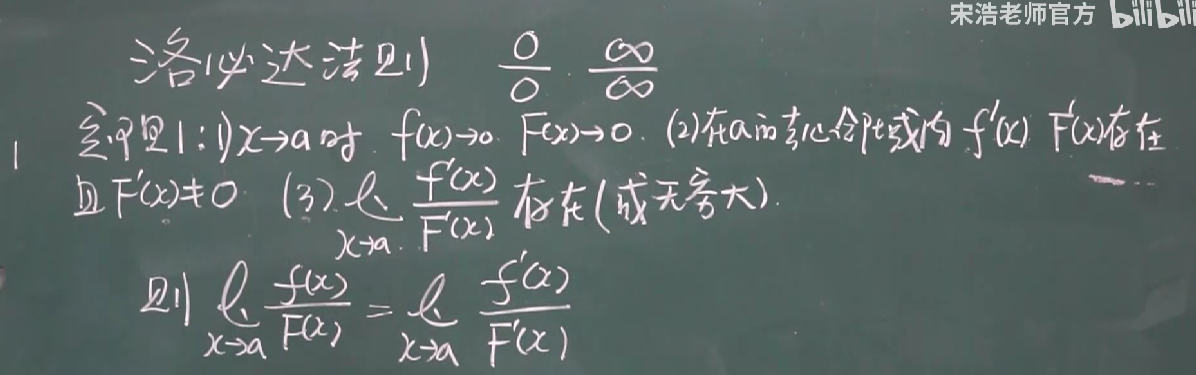 宋浩老师官方 bilibili
洛必达法则 0/0 . ∞/∞
定理1:1) x→a时. f(x)→0. F(x)→0. (2)在a的去心邻域内 f'(x) F'(x)存在
且F'(x)≠0 (3). l. x→a. f'(x)/F'(x) 存在(或无穷大).
则 l. x→a f(x)/F(x) = l. x→a f'(x)/F'(x)